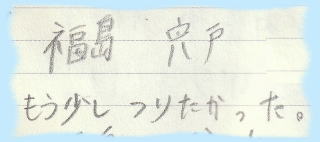 福島 宍戸
もう少し つりたかった。